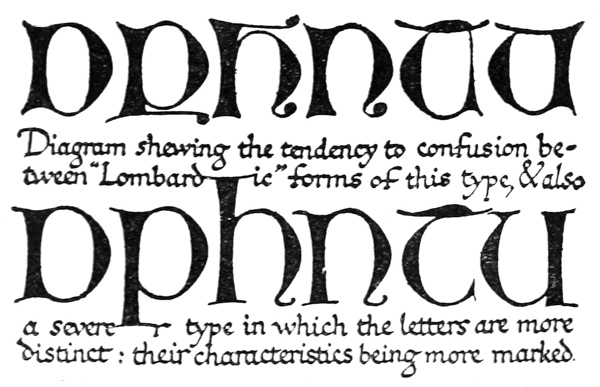 DPHNTU
Diagram shewing the tendency to confusion be-
tween "Lombardic" forms of this type, & also
DPHNTU
a severe type in which the letters are more
distinct: their characteristics being more marked.